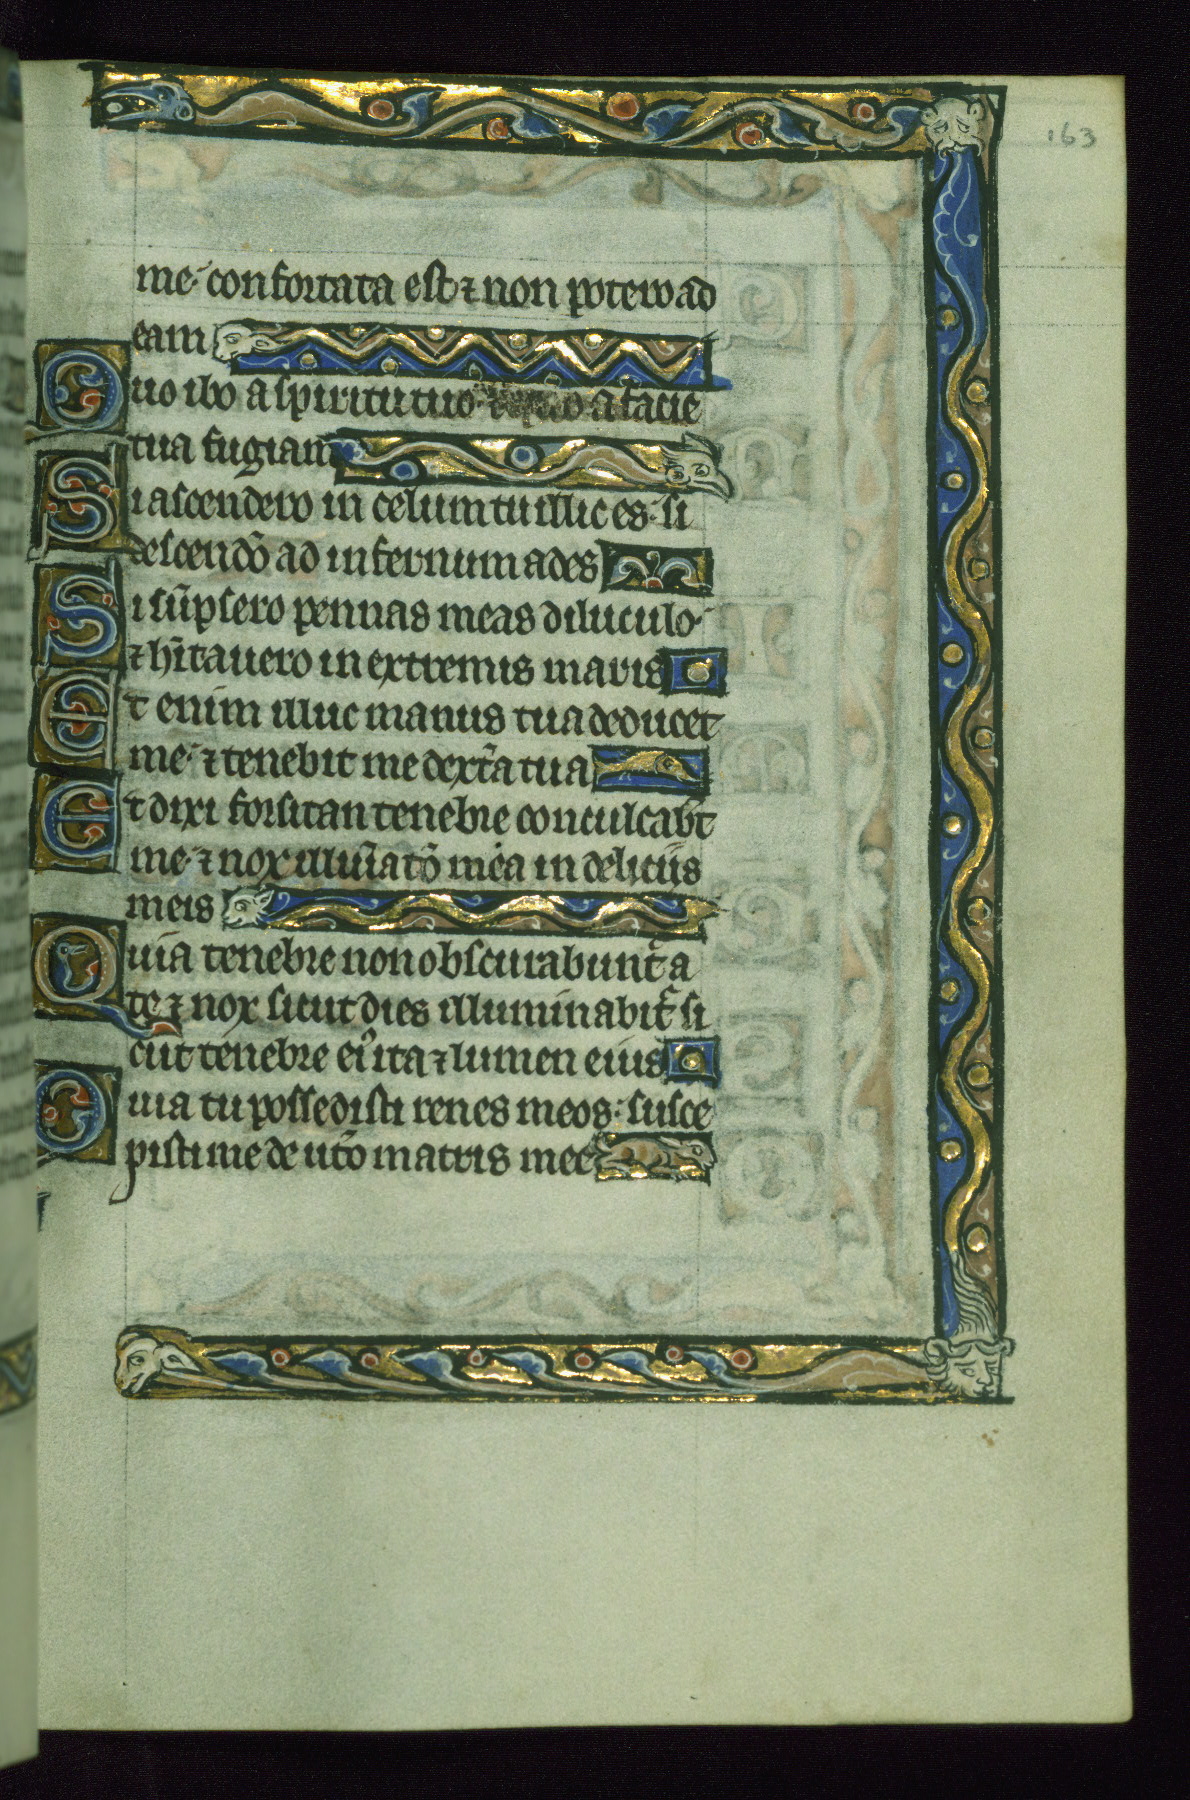 163
me· confortata est ⁊ non potero ad
eam
Quo ibo a spiritu tuo· ⁊ quo a facie
tua fugiam
Si ascendero in celum tu illic es· si
descendo᷒ ad infernum ades
Si sūpsero pennas meas diluculo·
⁊ hītauero in extremis maris
Et enim illuc manus tua deducet
me· ⁊ tenebit me dext̄a tua
Et dixi forsitan tenebre conculcabt̄
me· ⁊ nox illuīatō mea in deliciis
meis
Quia tenebre non obscurabunt᷑ a
te ⁊ nox sicut dies illuminabit᷑ si
cut tenebre ei᷒ ita ⁊ lumen eius
Quia tu possedisti renes meos· susce
pisti me de ut̄o matris mee